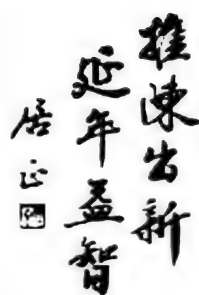 推陳出新
延年益智
居正